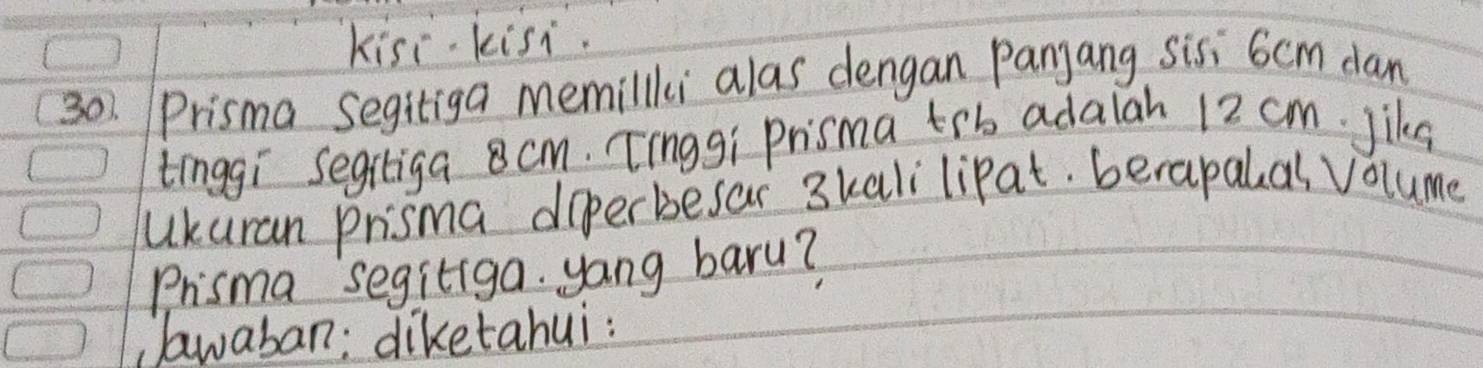 Kisi-kisi.
30). Prisma segitiga memiliki alas dengan panjang sisi 6cm dan
tinggi segitiga 8cm. Tinggi prisma tsb adalah 12 cm. Jika
ukuran prisma diperbesar 3kali lipat. berapakah volume
prisma segitiga. yang baru?
Jawaban: diketahui: